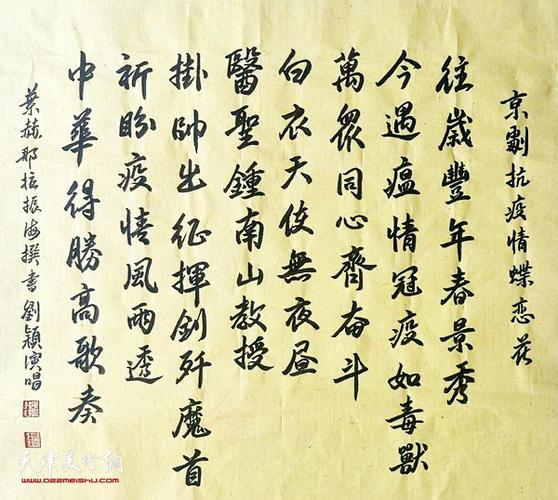 京劇抗疫情蝶恋花
往歲豐年春景秀
今遇瘟情冠疫如毒獸
萬眾同心齊奋斗
白衣天使無夜昼
醫聖鍾南山教授
掛帥出征揮劍歼魔首
祈盼疫情風雨透
中華得勝高歌奏
葉赫那拉振海撰書劉穎演唱
天津美术网
www.022meishu.com